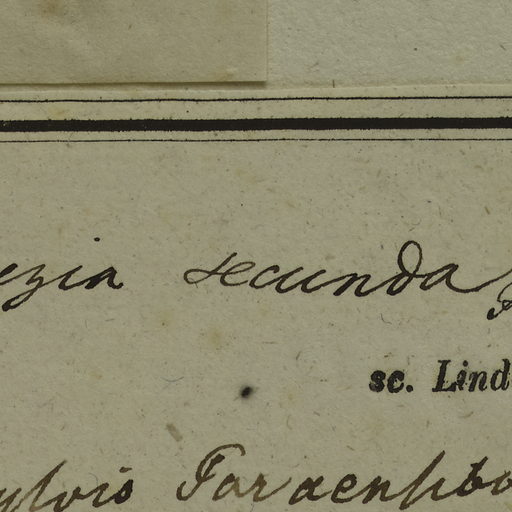 ezia secunda
sc. Lind
ylvis Taraensibo